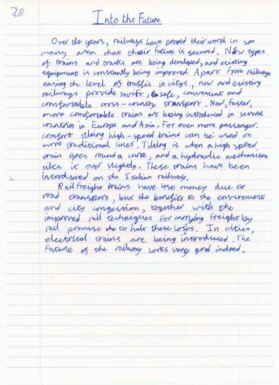 20
Into the Future
Over the years, railways have proved their worth in so
many areas that their future is secured. New types
of trains and tracks are being developed, and existing
equipment is constantly being improved. Apart from railways
easing the level of traffic in citys, new and existing
railways provide swift, safe, convenient and
comfortable cross-country transport. New, faster,
more comfortable trains are being introduced in several
countries in Europe and Asia. For even more passenger
comfort tilting high-speed trains can be used on
more traditional lines. Tilting is when a high speed
train goes round a curve, and a hydraulic mechanism
tilts it over slightly. These trains have been
introduced on the Italian railways.
Rail freight trains have lost money due to
road transport, but the benefits to the environment
and city congestion, together with the
improved rail techniques for carrying freight by
rail promise to halt these losses. In cities,
electrical trains are being introduced. The
future of the railway looks very good indeed.